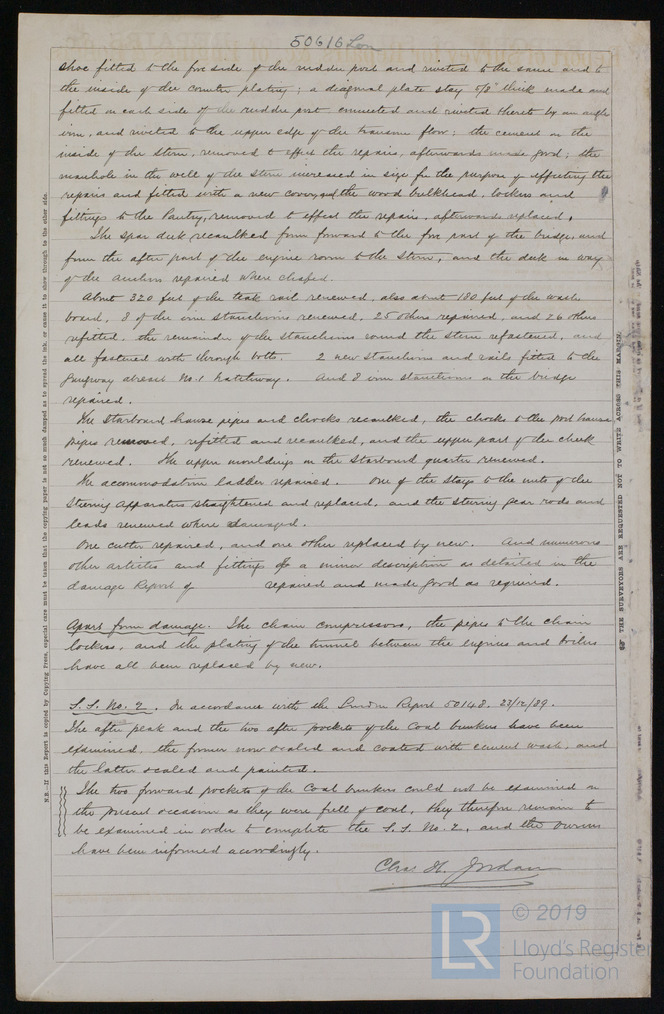 50616 Lon
shoe fitted to the fore side of the rudder post and riveted to the same and to
the inside of the counter plating; a diagonal plate stay 5/8" thick made and
fitted on each side of the rudder post connected and riveted thereto by an angle
iron, and riveted to the upper edge of the transom floor: the cement on the
inside of the stern, removed to effect the repairs, afterwards made good; the
manhole in the well of the stern increased in size for the purpose of effecting the
repairs and fitted with a new cover, and the wood bulkhead, lockers and
fittings to the Pantry, removed to effect the repairs, afterwards replaced.
The spar deck recaulked from forward to the fore part of the bridge, and
from the after part of the engine room to the stern, and the deck in way
of the anchors repaired where chafed.
About 320 feet of the teak rail renewed, also about 180 feet of the wash
board, 8 of the iron stanchions renewed, 25 others repaired, and 26 others
refitted, the remainder of the stanchions round the stern refastened, and
all fastened with through bolts. 2 new stanchions and rails fitted to the
gangway abreast No. 1 hatchway. And 8 iron stanchions on the bridge
repaired.
The starboard hawse pipes and chocks recaulked, the chocks to the port hawse
pipes removed, refitted and recaulked, and the upper part of the cheek
renewed. The upper mouldings on the starboard quarter renewed.
The accommodation ladder repaired. One of the stays to the nuts of the
Steering Apparatus straightened and replaced, and the steering gear rods and
leads renewed where damaged.
One cutter repaired, and one other replaced by new. And numerous
other articles and fittings of a minor description as detailed in the
damage Report of repaired and made good as required.
Apart from damage. The chain compressors, the pipes to the chain
lockers, and the plating of the tunnel between the engines and boilers
have all been replaced by new.
S.S. No. 2. In accordance with the London Report 50148. 23/12/89.
The after peak and the two after pockets of the Coal bunkers have been
examined, the former now scaled and coated with cement wash, and
the latter scaled and painted.
The two forward pockets of the Coal bunkers could not be examined on
the present occasion as they were full of coal, they therefore remain to
be examined in order to complete the S.S. No. 2, and the owners
have been informed accordingly.
Chas H. Jordan
N.B.—If this Report is copied by Copying Press, especial care must be taken that the copying paper is not so much damped as to spread the ink, or cause it to show through to the other side.
THE SURVEYORS ARE REQUESTED NOT TO WRITE ACROSS THIS MARGIN.
LR © 2019
Lloyd's Register
Foundation